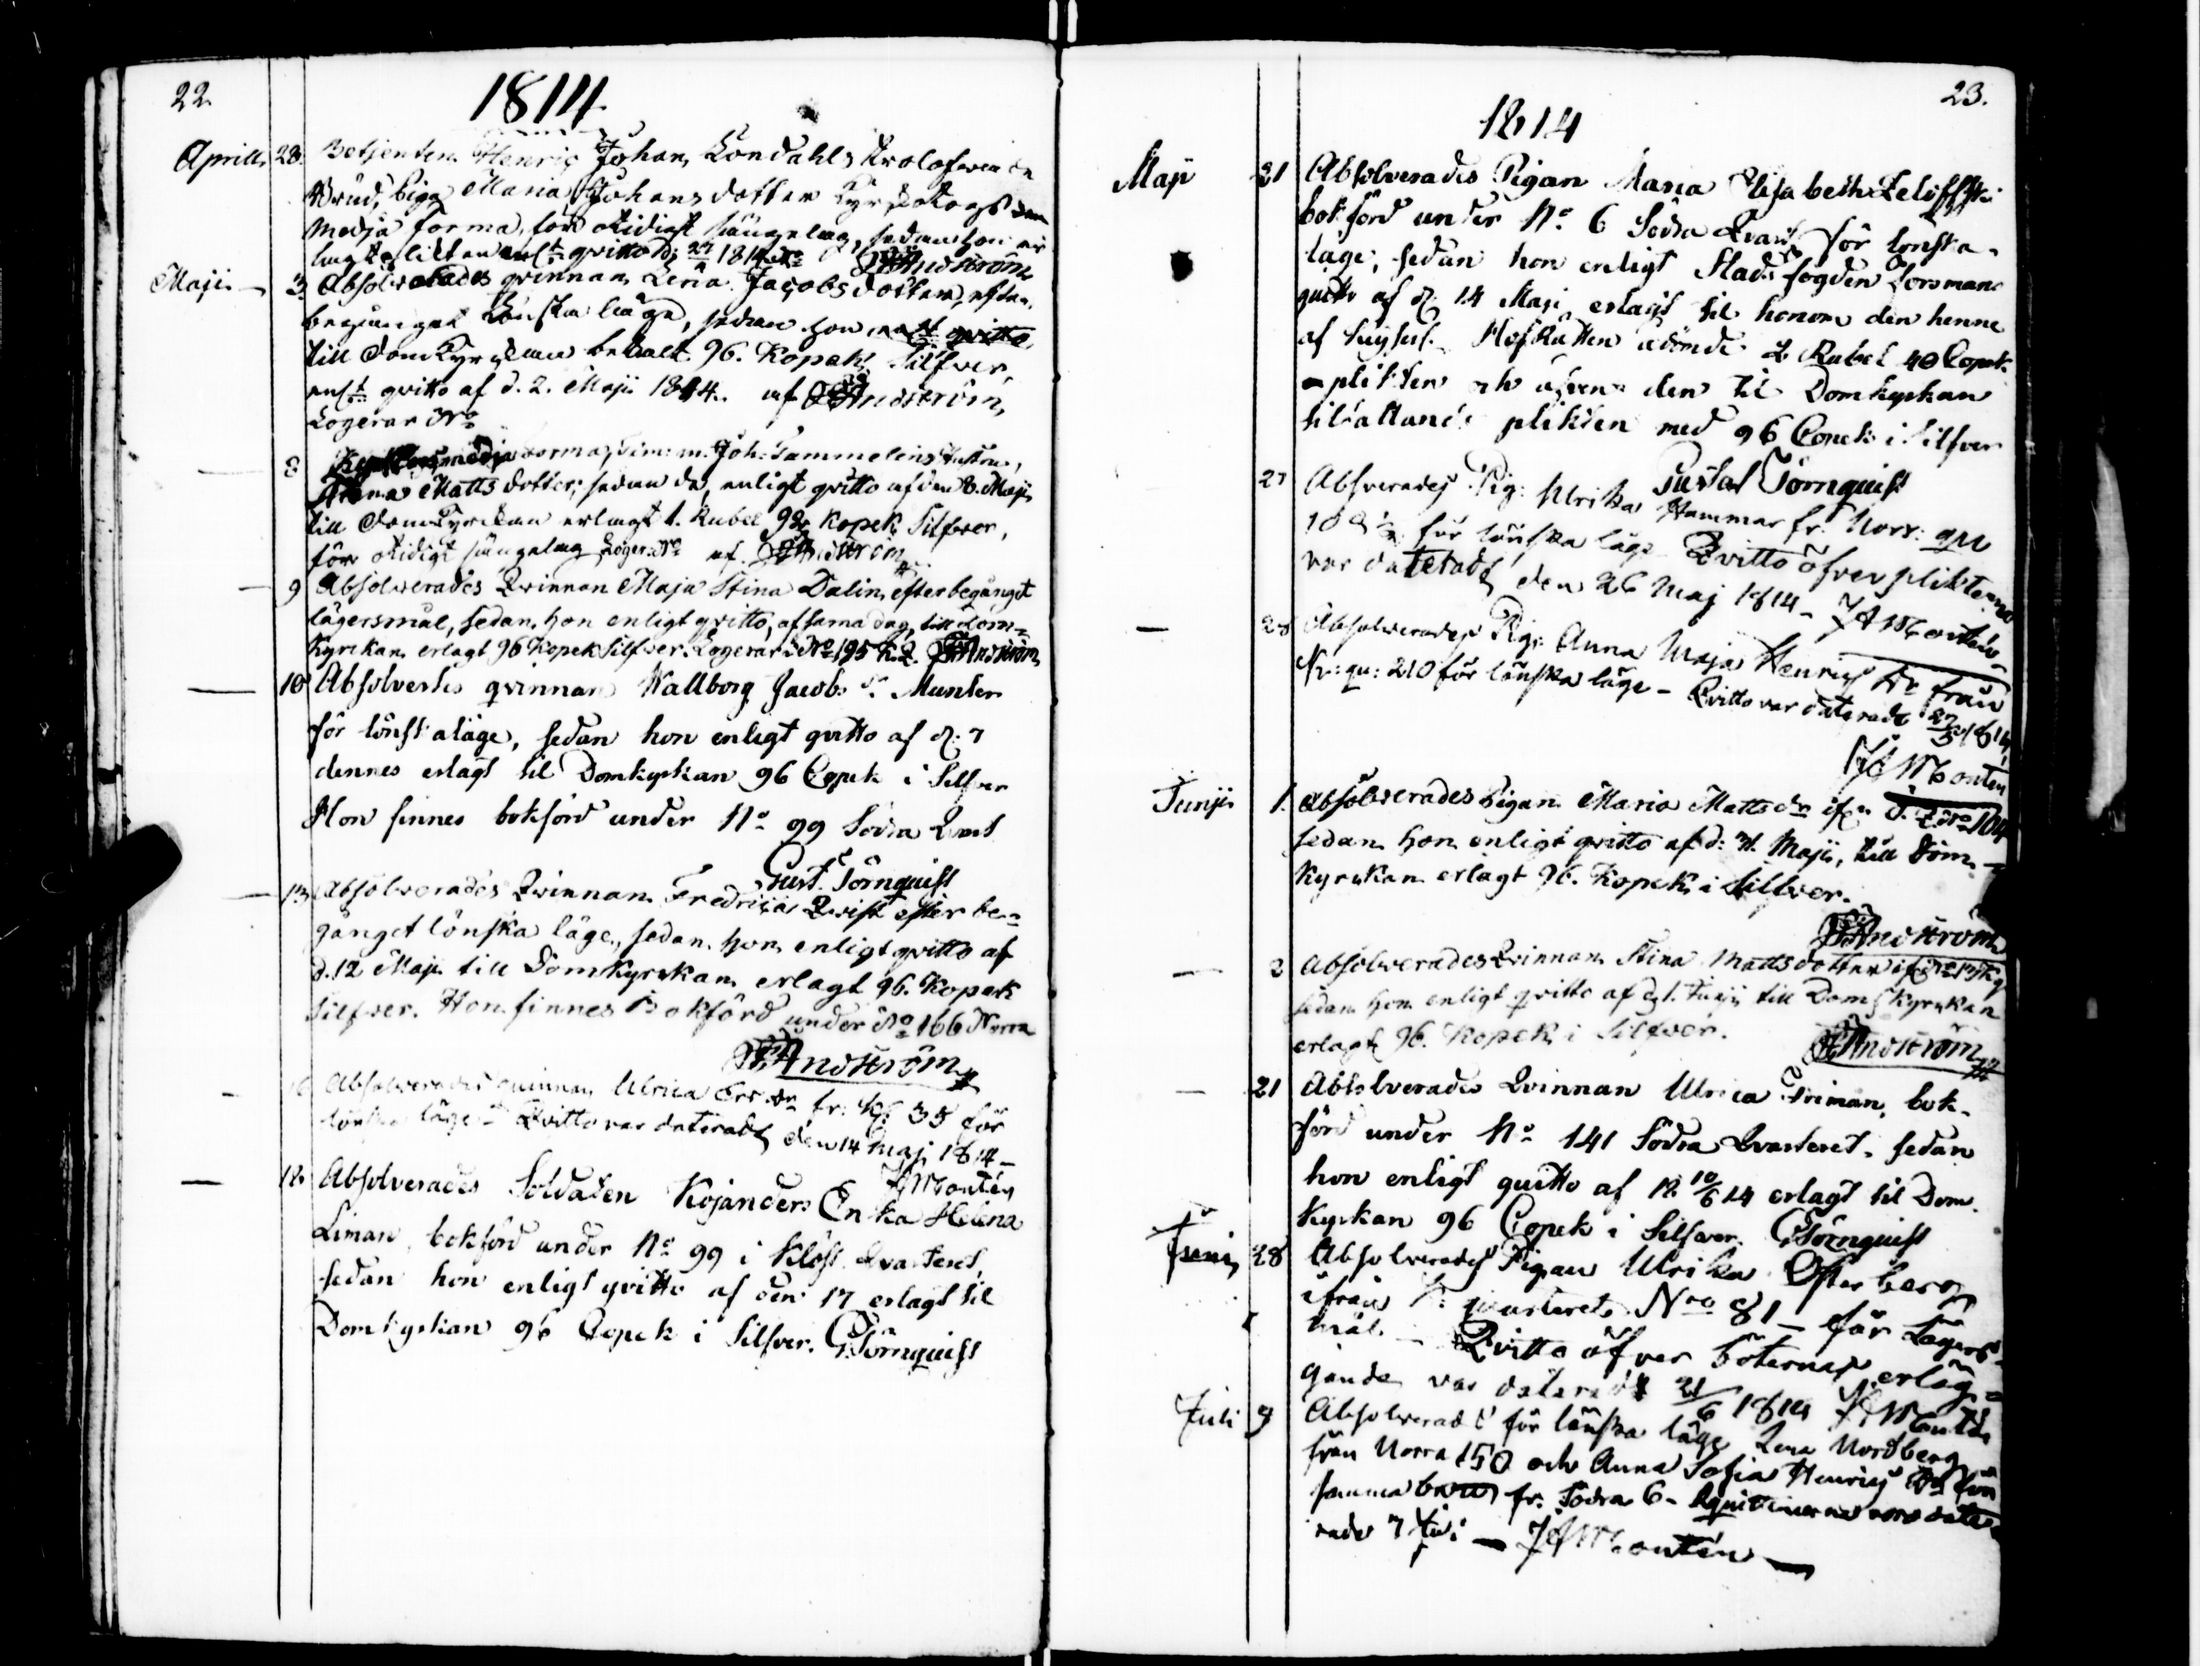 22.
1814
Aprill. 28. Betjenten Henric Johan Londahls
Brud, Piga Maria Johansdotter
media forma, för otidigt sängelag, sedan hon
qvitto d: 27/4 1814 Andström
Maji 3. Absolverades qvinnan Lena Jacobsdotter, efter
begånget Lönska läge, sedan hon
till Domkyrckan betalt 96. Kopek Silfver,
enl:t qvitto af d. 2. Maji 1814. af Andström
Logerar No
8 media forma, Tim: m. Joh: Tammelins hustru,
Matts dotter; sedan de, enligt qvitto af den 8. Maji
till Domkyrckan erlagt 1. Rubel 92 Kopek Silfver,
för otidigt sängelag Loger: No af Andström
9 Absolverades Qvinnan Maja Stina Dalin, efter begånget
lägersmål, sedan hon enligt qvitto, af sama dag, till Dom=
kyrkan erlagt 96 Kopek Silfver. Logerar i No 195 K. Q. Andström
10 Absolvertes qvinnan Wallborg Jacobs d. Munter
för lönskaläge, sedan hon enligt qvitto af d: 7
dennes erlagt til Domkyrkan 96 Copek i Silfver
Hon finnes bokförd under No 99 Södra Qvart
Gust. Törnquist
13 Absolverades Qvinnan Fredrica Qvist efter be=
gånget lönska läge, sedan hon enligt qvitto af
d. 12 Maji till Domkyrckan erlagt 96. Kopek
Silfver. Hon finnes Bokförd under No 166 Norra
Andström
Absolverades qvinnan Ulrica Ers dr fr: Kl: 35 för
lönska läge - Qvitto var dateradt den 14 Maj 1814 -
Montén
18. Absolverades Soldaten Kojanders Enka Helena
Liman, bokförd under No 99 i Klost. Qvarteret,
sedan hon enligt qvitto af den 17 erlagt til
Domkyrkan 96 Copek i Silfver. GTörnquist
23.
1814
Maji 21 Absolverades Pigan Maria Elisabeth
bokförd under No 6 Södra Qvart för lönska-
läge, sedan hon enligt Stads fogden Forsmans
quitto af d: 14 Maji erlagt til honom den henne
af Hofrätten ådömde 2 Rubel 40 Copek
plikten och äfven den til Domkyrkan
plikten med 96 Copek i Silfver
Gustaf Törnquist
27 Absverades Pig: Ulrika Hammar fr. Norr: qu
108 1/2 för lönska läge Qvitto öfver plikterna
var dateradt den 26 Maj 1814 - JA Montén
28 Absolverades Pig: Anna Maja Henrics dr från
Nr: qu: 210 för lönska läge - Qvitto var daterade 27/5 1814
JA Montén
Junji 1. Absolverades Pigan Maria Matts dr ifr: S. Q No 104
sedan hon enligt qvitto af d: 31. Maji, till Dom-
kyrckan erlagt 96. Kopek i Silfver.
Andström
2 Absolverades Qvinnan Stina Mattsdotter
sedan hon enligt qvitto af d. 1. Junji till Domkyrckan
erlagt 96. Kopek i Silfver. Andström
21 Absolverades Qvinnan Ulrica Friman, bok-
förd under No 141 Södra Qvarteret, sedan
hon enligt quitto af d. 10/6 14 erlagt til Dom-
kyrkan 96 Copek i Silfver. GTörnquist
Juni 28 Absolverades Pigan Ulrika Österberg
ifrån qvarteret Nro 81 - för Lägers-
mål. - Qvitto öfver böternas erläg=
gande var dateradt 21/6 1814 JA Montén
Juli 9 Absolverad för lönska läge Lena Nordberg
från Norra 150 och Anna Sofia Henrics dr för
samma brott fr: Södra 6 - Quittencerna voro date-
rade 7 Juli - JA Montén -